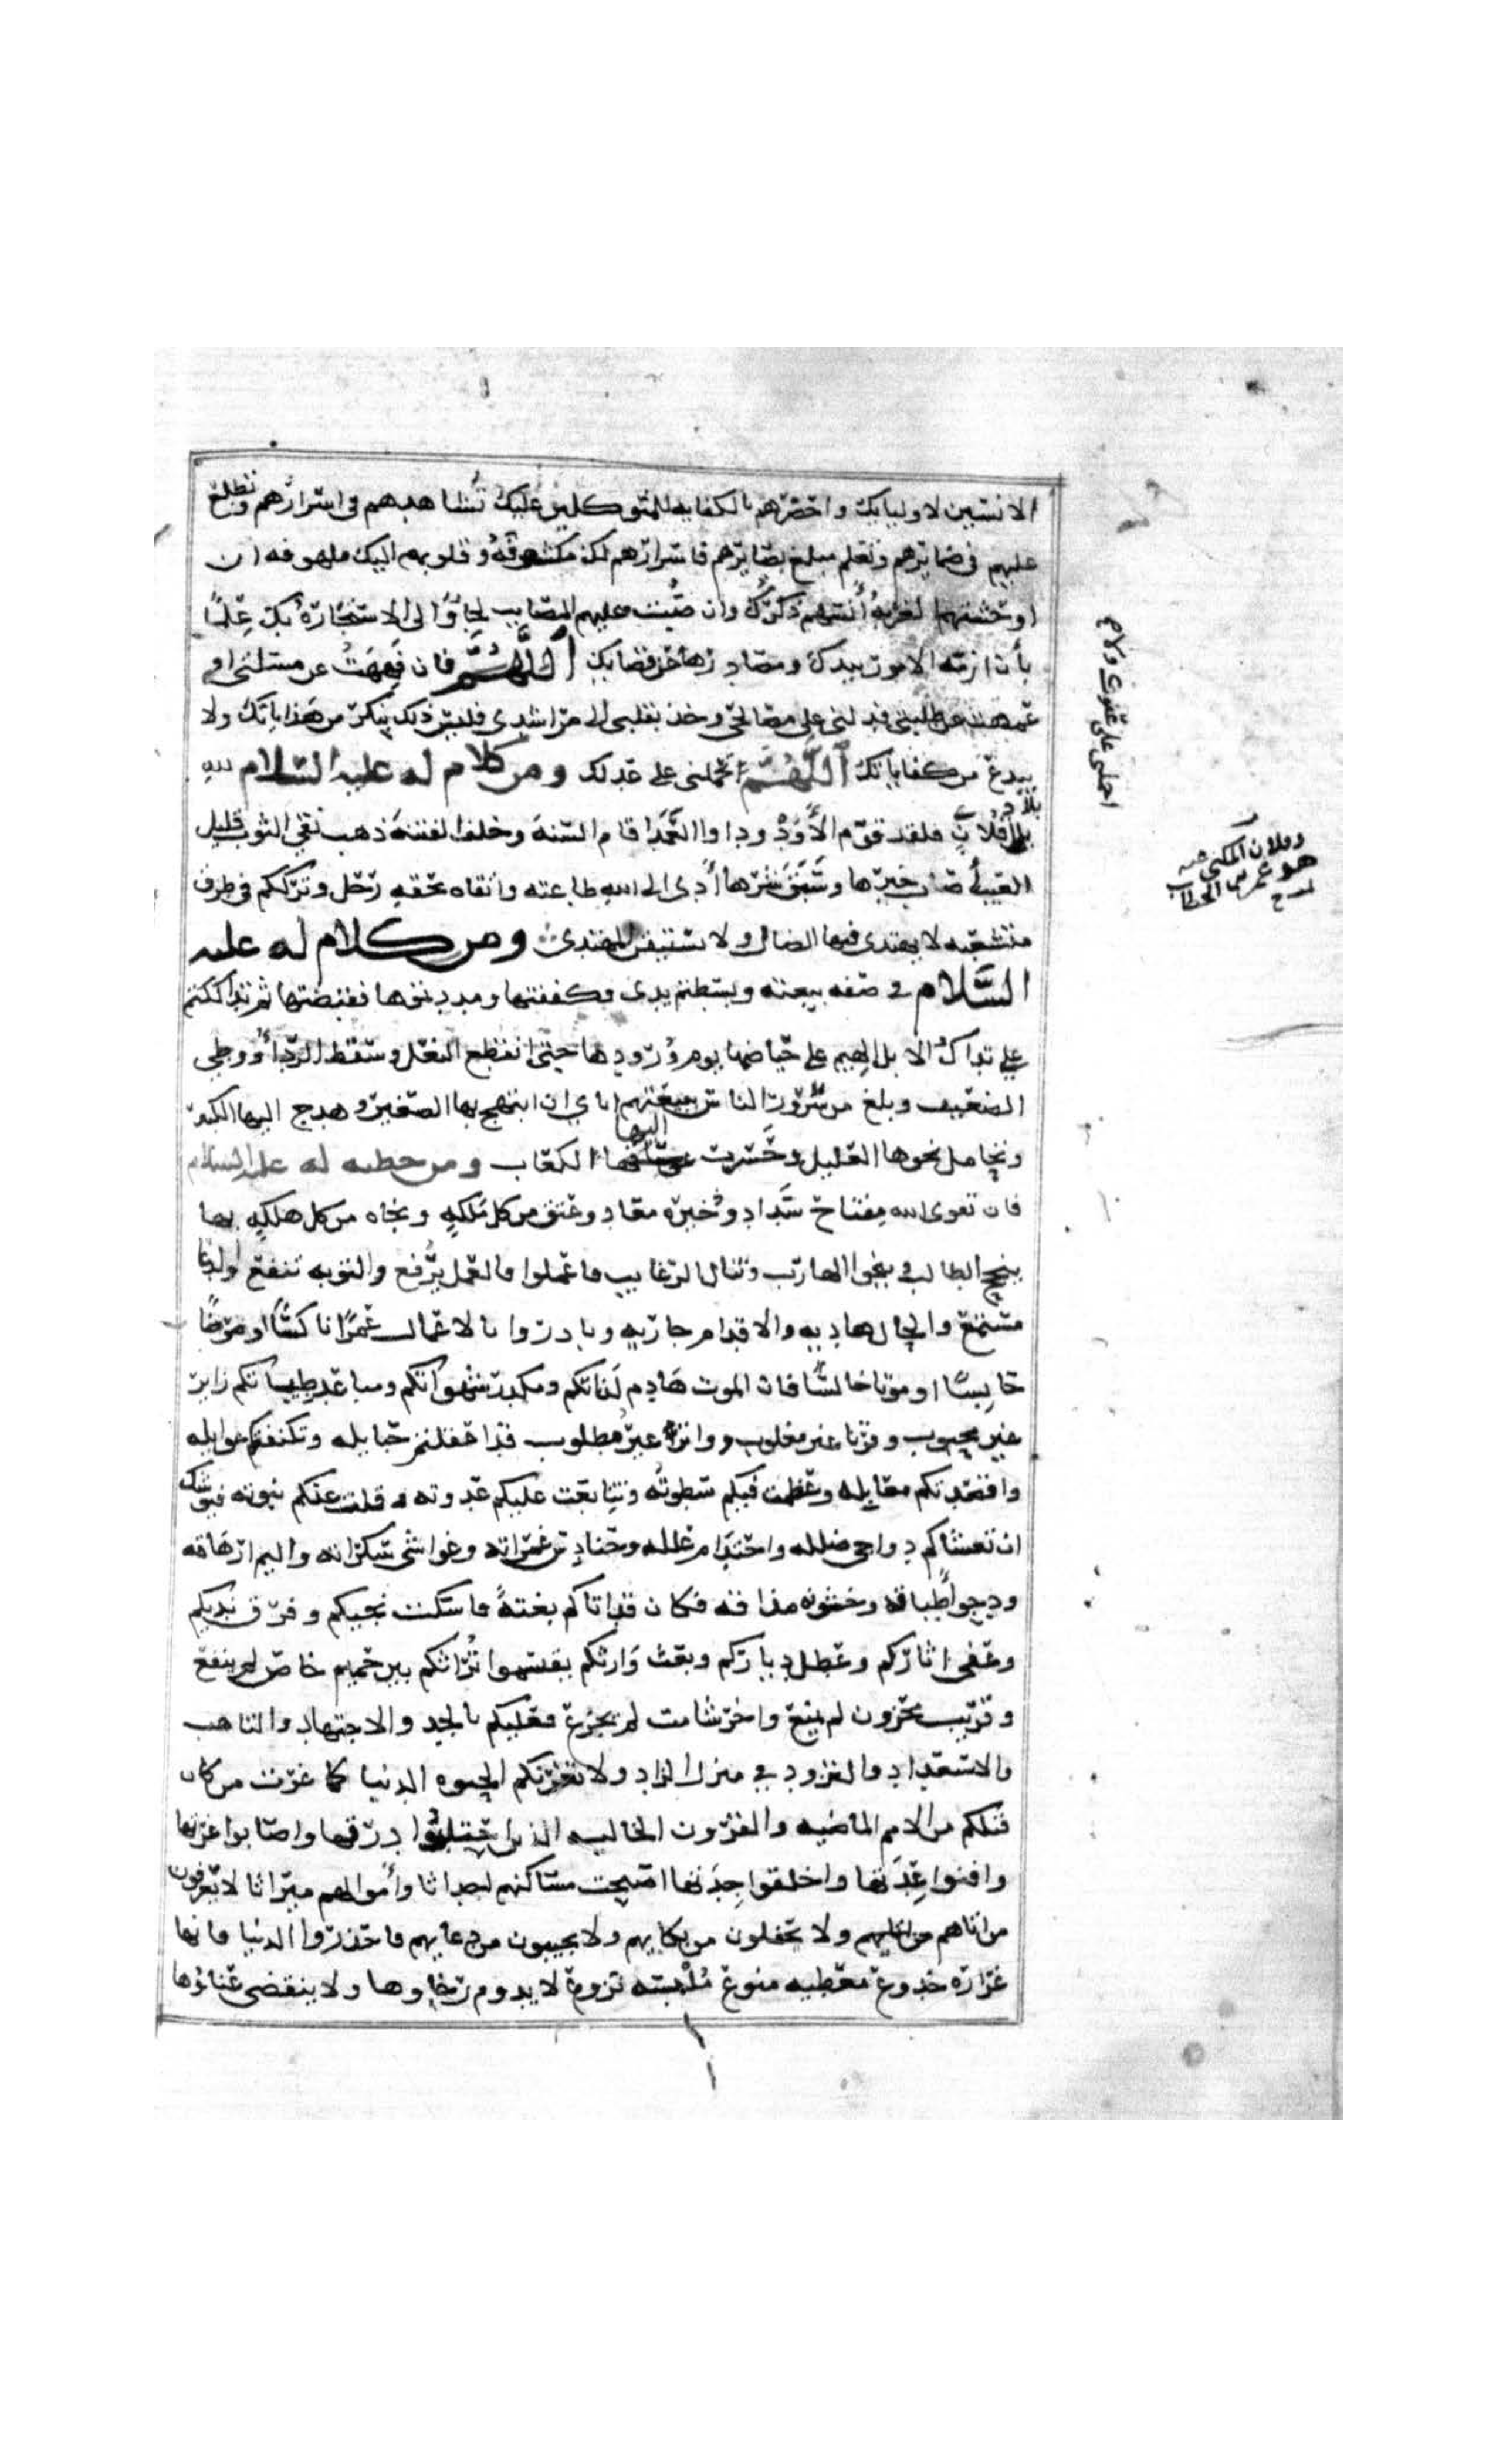 الانسين لاوليايك واحضرهم بالكفايه للمتوكلين عليك تشاهدهم في اسرارهم وتطلع
عليهم في ضمايرهم وتعلم مبلغ بصايرهم فاسرارهم لك مكشوفة وقلوبهم اليك ملهوفه ان
اوحشتهم الغربة أنسهم ذكرك وان صبت عليهم المصايب لجاؤا الى الاستجارة بك علما
بأن ازمة الامور بيدك ومصادرها عن قضايك اللهم فان فههت عن مسئلتي او
عمهت عن طلبتي فدلني على مصالحي وخذ بقلبي الى مراشدي فليس ذلك بنكر من هداياتك ولا
ببدع من كفاياتك اللهم احملني على عدلك ومن كلام له عليه السلام لله
بلاد فلان فلقد قوم الأود وداوا العمد اقام السنة وخلف الفتنة ذهب نقي الثوب قليل
العيب أصاب خيرها وسبق شرها أدى الى الله طاعته واتقاه بحقه رحل وتركهم في طرق
متشعبه لا يهتدى فيها الضال ولا يستيقن المهتدى ومن كلام له عليه
السلام في صفه بيعته وبسطتم يدى فكففتها ومددتموها فقبضتها ثم تداككتم
علي تداك الابل الهيم على حياضها يوم ورودها حتى انقطع النعل وسقط الردأ ووطي
الضعيف وبلغ من سرور الناس ببيعتهم اياي ان ابتهج بها الصغير وهدج اليها الكبير
وتحامل نحوها العليل وحسرت اليها الكعاب ومن خطبه له عليه السلام
فان تقوى الله مفتاح سداد وذخيرة معاد وعتق من كل ملكه ونجاه من كل هلكه بها
ينجح الطالب وينجوا الهارب وتنال الرغايب فاعملوا فالعمل يرفع والتوبه تنفع والدعا
مستمع والحال هاديه والاقلام جاريه وبادروا بالاعمال عمرا ناكسا او مرضا
حابسا او موتا خالسا فان الموت هادم لذاتكم ومكدر شهواتكم ومباعد طياتكم زاير
غير محبوب وقرنا غير مغلوب وواتر غير مطلوب قد اعفلتم حبايله وتكنفتكم غوايله
واقصدتكم معابله وعظمت فيكم سطوته وتتابعت عليكم عدوته وقلت عنكم نبوته فيوشك
ان تغشاكم دواجي ضلله واحتدام علله وحنادس غمراته وغواشي سكراته واليم ارهاقه
ودجو أطباقه وخشونه مذاقه فكان قد اتاكم بغتة فاسكت نجيكم وفرق نديكم
وعفى اثاركم وعطل دياركم وبعث وارثكم يقتسموا تراثكم بين حميم خاص لم ينفع
وقريب محزون لم يمنع واخر شامت لم يجزع فعليكم بالجد والاجتهاد والتاهب
والاستعداد والتزود في منزل الزاد ولا تغرنكم الحيوه الدنيا كما غرت من كان
قبلكم من الامم الماضيه والقرون الخاليه الذين احتلبوا درتها واصابوا غرتها
وافنوا عدتها واخلقوا جدتها اصبحت مساكنهم اجداثا وأموالهم ميراثا لا يعرفون
من اتاهم ولا يحفلون من بكاهم ولا يجيبون من دعاهم فاحذروا الدنيا فانها
غراره خدوع معطيه منوع ملبسه نزوع لا يدوم رخاوها ولا ينقضى عناؤها
احملني على عفوك ولا م
وفلان المكنى عنه
هو عمر بن الخطاب